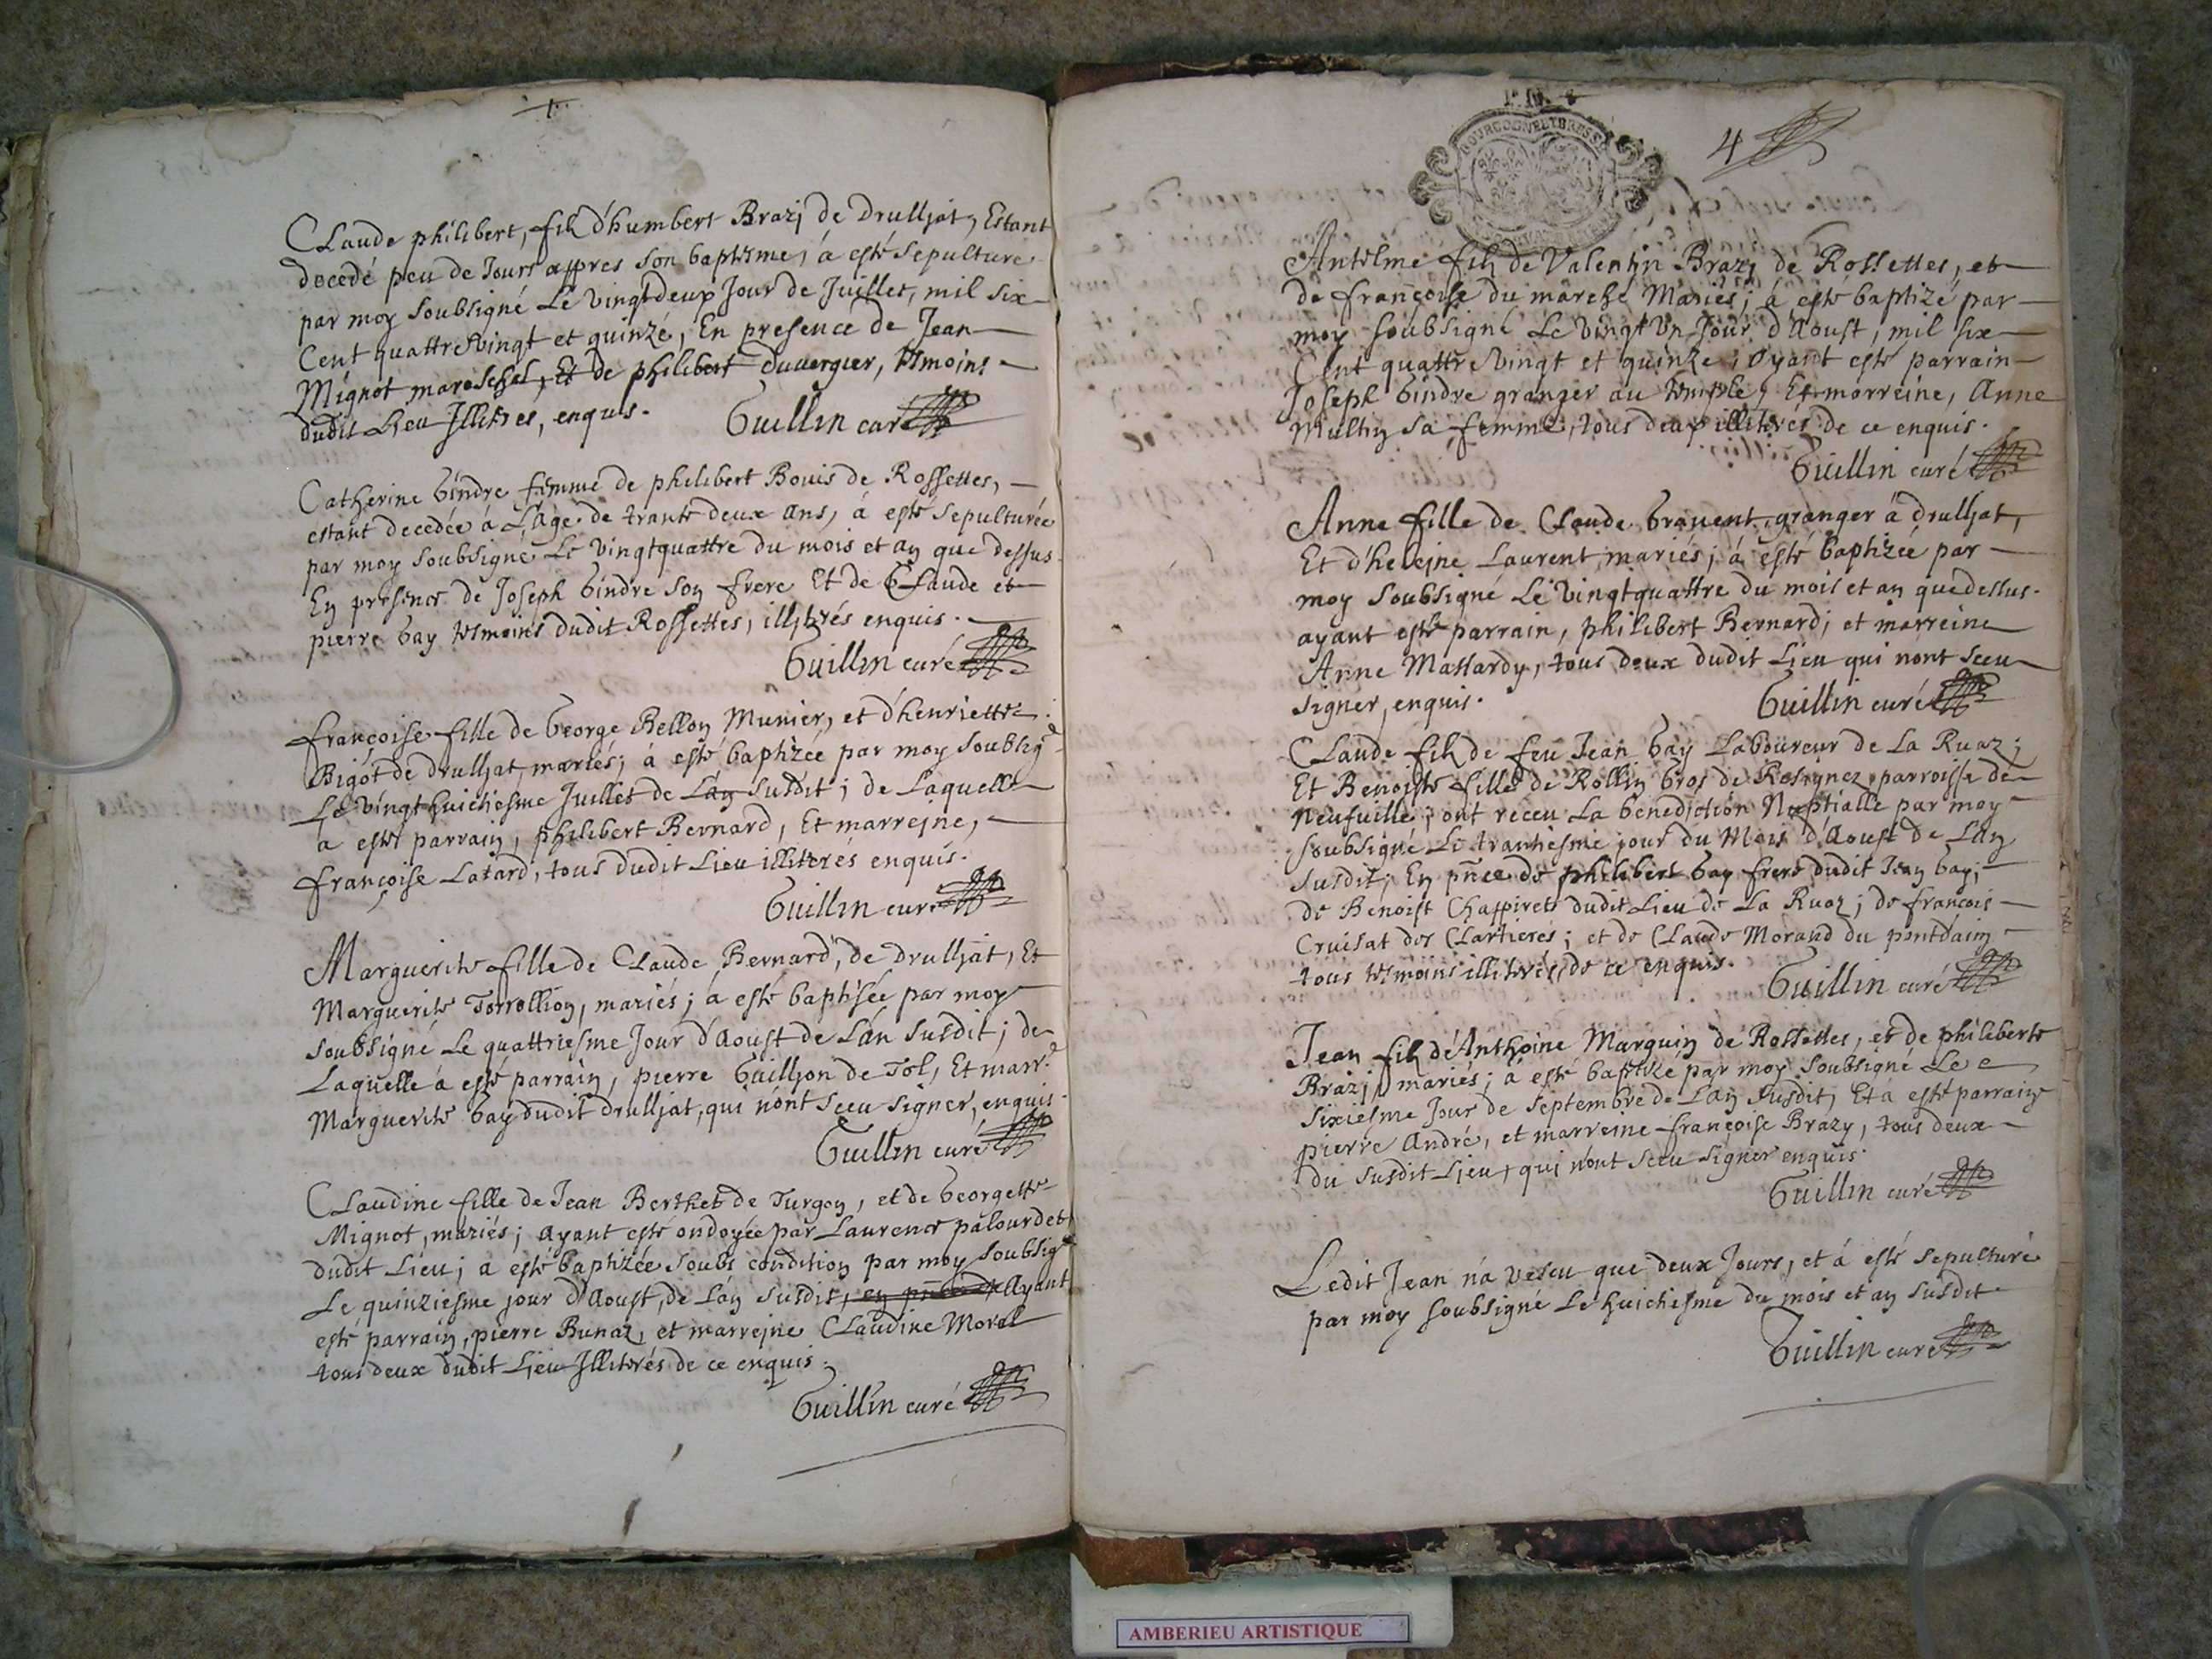 Claude philibert, filz d'humbert Brazj de drulljat, Estant
decedé peu de Jours appres son baptesme, á esté sepulturé
par moy soubsigné Le vingtdeux Jour de Juillet, mil six
Cent quattrevingt et quinze, En presence de Jean
Mignot mareschal, Et de philibert duvergier, tesmoins
dudit Lieu Illitres, enquis.
Guillin curé
Catherine Gindre femme de philibert Bouis de Rossettes,
estant decedée á L'age de trante deux ans, á esté sepulturée
par moy soubsigné Le vingtquattre du mois et an que dessus
En presence de Joseph Gindre son frere Et de Claude et
pierre Gay tesmoins dudit Rossettes, illitrés enquis.
Guillin curé
françoise fille de George Bellon Munier, et d'henriette
Bigot de drulljat, mariés; á esté baptizée par moy soubsigé
Le vingthuictiesme Juillet de Lán susdit; de Laquelle
a esté parrain, philibert Bernard, Et marrejne,
françoise Latard, tous dudit Lieu illiterés enquis.
Guillin curé
Marguerite fille de Claude Bernard, de drulljat, Et
Marguerite Torrollion, mariés; á esté baptisée par moy
soubsigné Le quattriesme Jour d'Aoust de Lán susdit; de
Laquelle á esté parrain, pierre Guilljon de Tol, Et marr.e
Marguerite Gay dudit drulljat, qui n'ont sceu signer, enquis.
Guillin curé
Claudine fille de Jean Berthet de Turgon, et de Georgette
Mignot, mariés; ayant esté ondoyée par Laurence palourdet
dudit Lieu; a esté baptizée soubs condition par moy soubsigé
Le quinziesme jour d'Aoust, de Lán susdit, Ayant
esté parrain, pierre Bunaz, et marrejne Claudine Morel
tous deux dudit Lieu Illiterés de ce enquis.
Guillin curé
BOURGOGNE ET BRESSE
4
Antelme filz de Valentin Brazj de Rossettes, et
de françoise du marché Mariés; á esté baptizé par
moy soubsigné Le vingt un Jour d'Aoust, mil six
Cent quattre vingt et quinze; Ayant esté parrain
Joseph Gindre granger au temple, Et marreine, Anne
Multin sa femme, tous deux illiterés de ce enquis.
Guillin curé
Anne fille de Claude Gravent, granger á drulljat,
Et d'helejne Laurent mariés; á esté baptizée par
moy soubsigné Le vingtquattre du mois et an que dessus.
ayant esté parrain, philibert Bernard; et marreine
Anne Massardy, tous deux dudit Lieu qui nont sceu
signer, enquis.
Guillin curé
Claude filz de feu Jean Gay Laboureur de La Ruaz;
Et Benoiste fille de Rollin Gros de Resignez parroisse de
Neufville; ont receu La benediction Nuptialle par moy
soubsigné Le trantiesme jour du Mois d'Aoust de Lan
susdit; En pñce de philibert Gay frere dudit Jean Gay;
de Benoist Chappiret dudit Lieu de La Ruaz; de françois
Cruisat des Clartieres; et de Claude Morand du pontdain
tous tesmoins illiterés, de ce enquis.
Guillin curé
Jean filz de Anthoine Marquin de Rossettes, et de philiberte
Brazj, mariés; á esté baptizé par moy soubsigné Le
sixiesme Jour de septembre de Lán susdit, Et á esté parrain
pierre André, et marreine françoise Brazy, tous deux
du susdit Lieu, qui n'ont sceu signer enquis.
Guillin curé
Ledit Jean n'a vescu que deux Jours, et á esté sepulturé
par moy soubsigné Le huictiesme du mois et an susdit
Guillin curé
AMBERIEU ARTISTIQUE